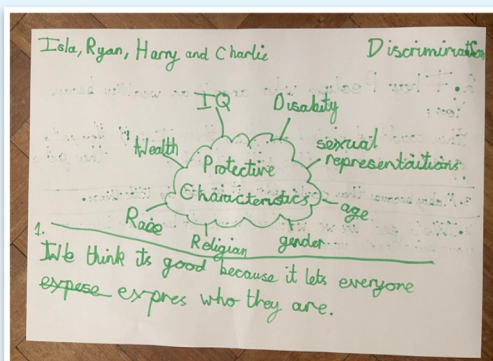 Isla, Ryan, Harry and Charlie
Discrimination
IQ
Disabity
Wealth
sexual
representaitions
Protective
Characteristics
age
Race
Religian
gender
1.
We think its good because it lets everyone
expese expres who they are.